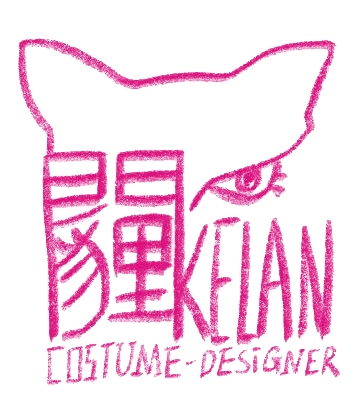 KELAN
COSTUME-DESiGNER